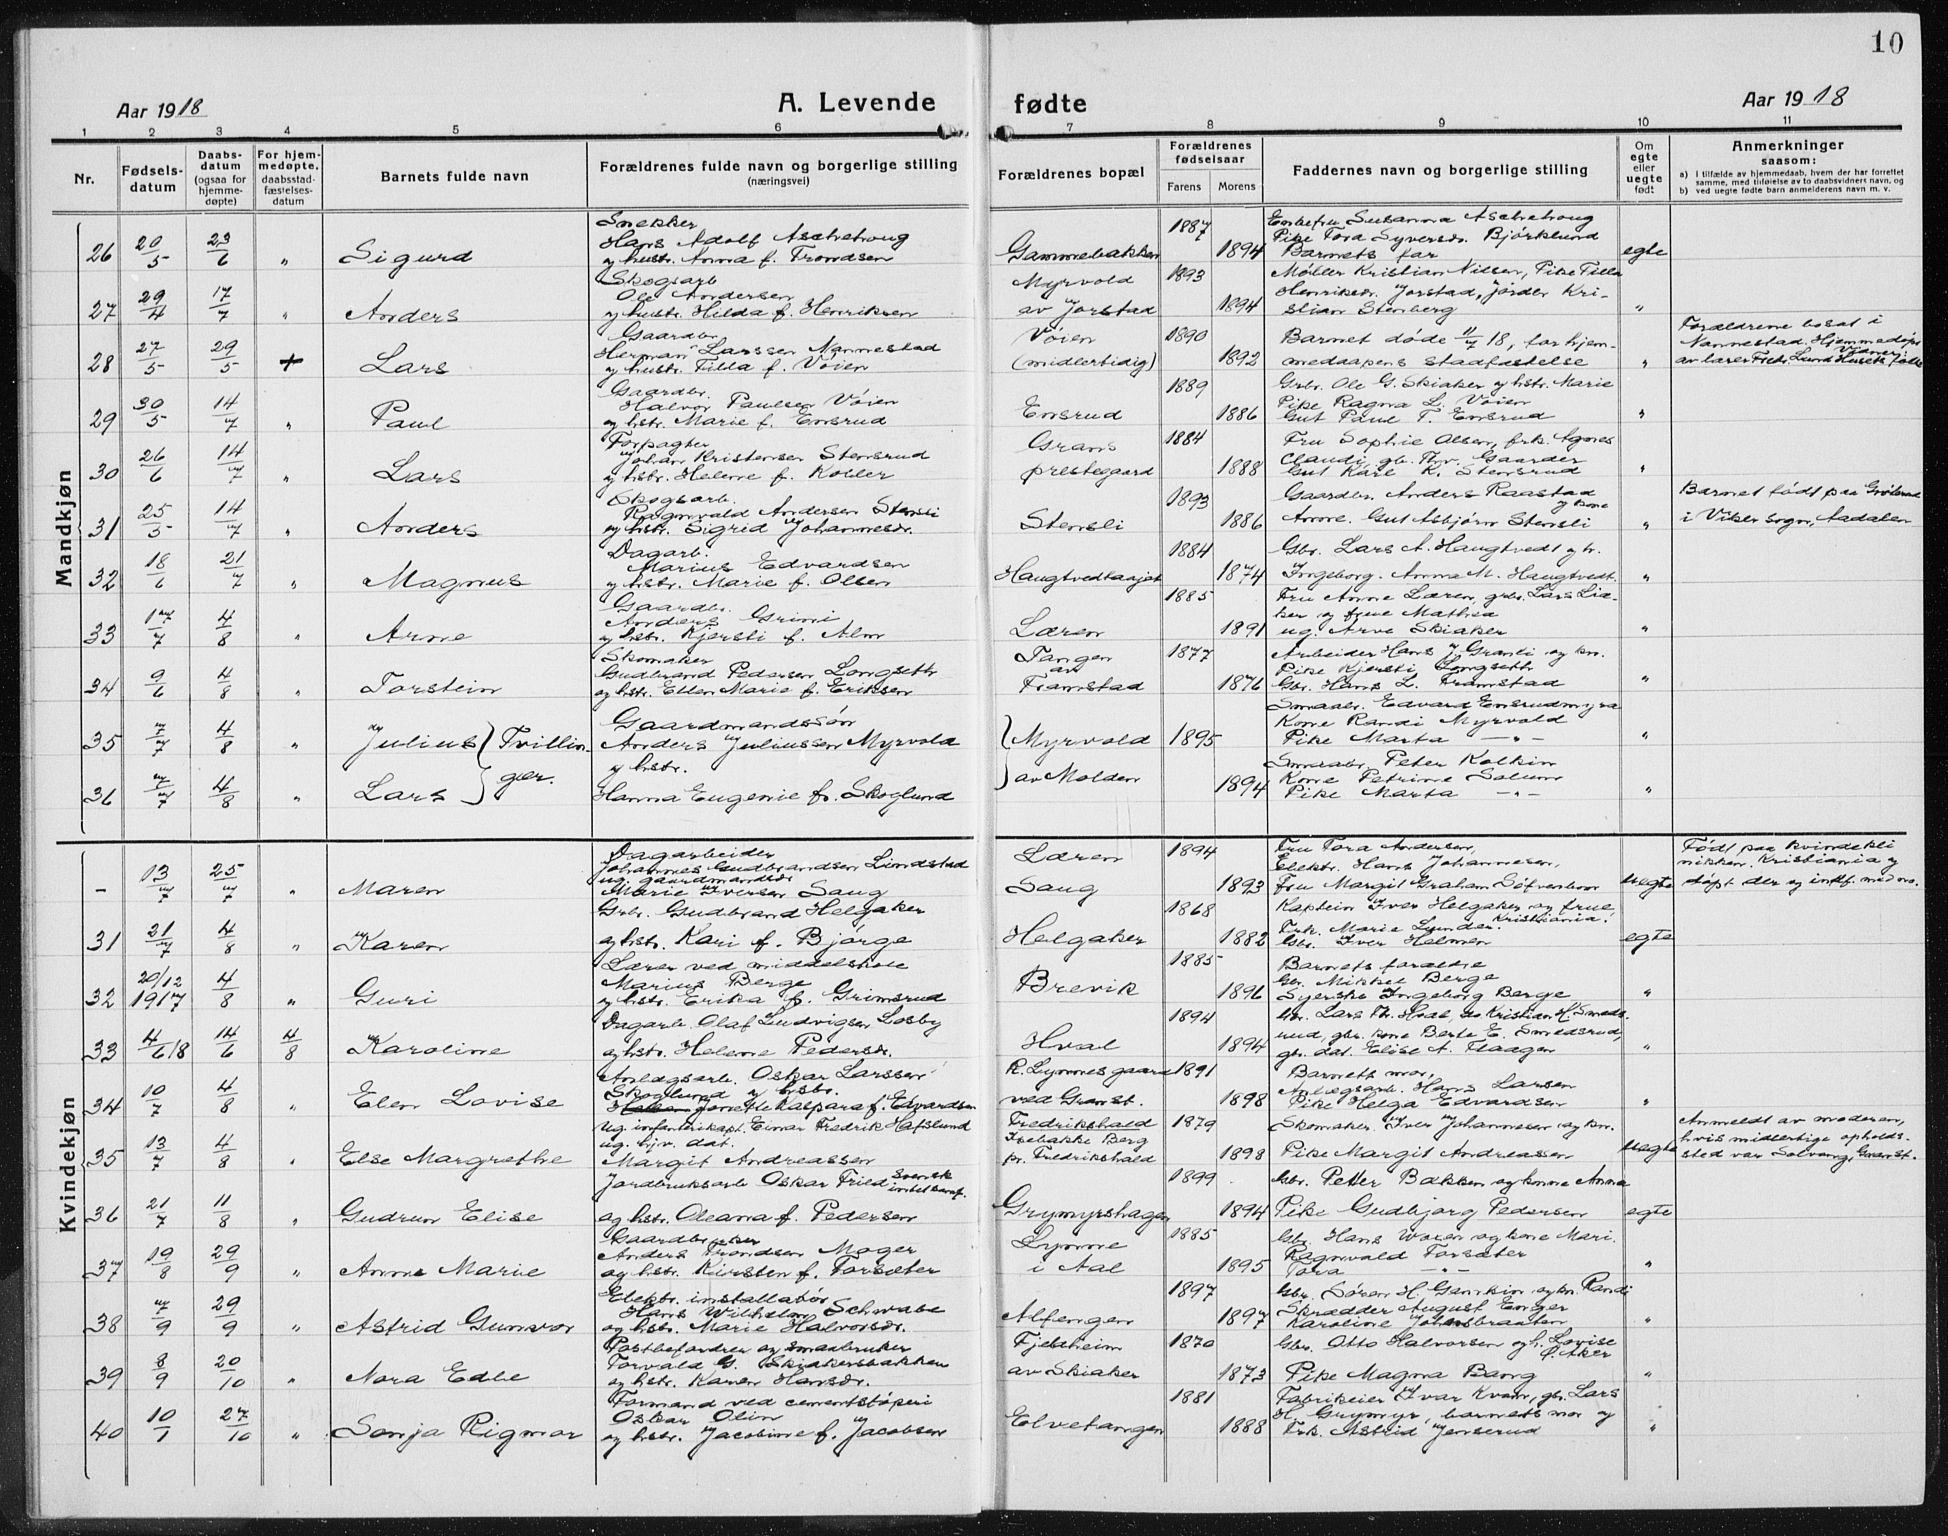 10
Aar 1918
A. Levende
fødte
Aar 1918
1 2 3 4 5 6 7 8 9 10 11
Nr.
Fødsels-
datum
Daabs-
datum
(ogsaa for
hjemme-
døpte)
For hjem-
medøpte,
daabsstad-
fæstelses-
datum
Barnets fulde navn
Forældrenes fulde navn og borgerlige stilling
(næringsvei)
Forældrenes bopæl
Forældrenes
fødselsaar
Farens Morens
Faddernes navn og borgerlige stilling
Om
egte
eller
uegte
født
Anmerkninger
saasom:
a) i tilfælde av hjemmedaab, hvem der har forrettet
samme, med tilføielse av to daabsvidners navn, og
b) ved uegte fødte barn anmelderens navn m. v.
Mandkjøn
26 20/5 23/6 " Sigurd
Snekker
Hans Adolf Aschehoug
og hustr. Anna f. Trondsen
Gammebakken 1887 1894
Enkefru Susanna Aschehoug
Pike Tora Syversdr. Bjørklund
Barnets far
egte
27 29/4 17/7 " Anders
Skogsarb
Ole Andersen
og hustr. Hilda f. Henriksen
Myrvold
av Jorstad
1893 1894
Møller Kristian Nilsen, Pike Tilla
Henriksdr. Jorstad, Jørder Kri-
stian Stenberg
"
28 27/5 29/5 + Lars
Gaardbr.
Herman Larssen Nannestad
og hustr. Tilla f. Vøien
Vøien
(midlertidig)
1890 1892
Barnet døde 11/7 18, før hjem-
medaapens stadfæstelse
"
Forældrene bosat i
Nannestad. Hjemmedøpt
av lærer Fredr. Lund. Vidner: Husets folk
29 30/5 14/7 " Paul
Gaardbr.
Halvor Paulsen Vøien
og hstr. Marie f. Ensrud
Ensrud 1889 1886
Grbr. Ole G. Skiaker og hstr. Marie
Pike Ragna L. Vøien
Gut Paul T. Ensrud
"
30 26/6 14/7 " Lars
Forpagter
Johan Kristensen Stensrud
og hstr. Helene f. Koller
Grans
prestegaard
1884 1888
Fru Sophie Olsen, frk. Agnes
Claudi, gb. Thv. Gaarder
Gut Kåre K. Stensrud
"
31 25/5 14/7 " Anders
Skogsarb.
Ragnvald Andersen Stensli
og hstr. Sigrid Johannesdr.
Stensli 1893 1886
Gaardbr. Anders Raastad
og kone
Anne. Gut Asbjørn Stensli
"
Barnet født paa
i Viker sogn, Aadalen
32 18/6 21/7 " Magnus
Dagarb.
Marius Edvardsen
og hstr. Marie f. Olsen
Haugtvedtaajet 1884 1874
Gbr. Lars A. Haugtvedt og h.
Ingeborg. Anna M. Haugtvedt.
"
33 17/7 4/8 " Arne
Gaardbr.
Anders Grini
og hstr. Kjersti f. Alm
Læren 1885 1891
Fru Anne Læren, grbr. Lars Lia-
ker og frue Mathea
ug. Arve Skiaker
"
34 9/6 4/8 " Torstein
Skomaker
Gudbrand Pedersen Longseth
og hstr. Ellen Marie f. Eriksen
Tangen
av
Framstad
1877 1876
Arbeider Hans J. Granli og kn.
Pike Kjersti Longseth
Gbr. Hans L. Framstad
"
35 7/7 4/8 " Julius } Tvillin-
Gaardmandssøn
Anders Juliussen Myrvold
og hstr.
Myrvold 1895
Smaabr. Edvard Ensrudmyra
Kone Randi Myrvold
Pike Marta — " —
"
36 7/7 4/8 " Lars } ger.
Hanna Eugenie f. Skoglund
av Molden 1894
Smaabr. Peter Kolkin
Kone Petrine Solum
Pike Marta — " —
"
Kvindekjøn
- 13/7 25/7 " Maren
Dagarbeider
Johannes Gudbrandsen Lindstad
ug. gaardmandsdr
Marie Iversen Saug
Læren
Saug
1894 1893
Fru Tora Andersen,
Elektr. Hans Johannesen,
Fru Margit Graham
uegte
Født paa kvindekli
nikken. Kristiania og
døpt der og indf. med no.
31 21/7 4/8 " Karen
Grbr. Gudbrand Helgaker
og hstr. Kari f. Bjørge
Helgaker 1868 1882
Kaptein Iver Helgaker og frue
Kristiania.
Frk. Marie Lunder.
Gbr. Iver Helmen
egte
32 20/12 1917 4/8 " Guri
Lærer ved middelskole
Marius Berge
og hstr. Erika f. Grimsrud
Brevik 1885 1896
Barnets forældre
Gbr. Mikkel Berge
Syerske Ingeborg Berge
"
33 4/6 18 14/6 4/8 Karoline
Dagarb. Olaf Ludvigsen Løsby
og hstr. Helene Pedersdr.
Hval 1894 1894
Gbr. Lars Th. Hval, do Kristian H. Smeds-
rud, gbr. kone Berte E. Smedsrud,
gbr. dat. Elise A. Flaagen
"
34 10/7 4/8 " Elen Lovise
Anlægsarb. Oskar Larssen
Skoglund og hstr.
Jenette Kaspara f. Edvardsen
K. Lynnes gaard
ved Gran st.
1891 1898
Barnets mor,
Anlægsarb. Hans Larsen
Pike Helga Edvardsen
"
35 13/7 4/8 " Else Margrethe
Ug. infanterikapt. Einar Fredrik Hafslund
ug. hjv. dat.
Margit Andreassen
Fredrikshald
Isebakke Berg
pr. Fredrikshald
1879 1898
Skomaker Iver Johannesen og kn.
Pike Margit Andreassen
uegte
Anmeldt av moderen,
hvis midlertige opholds-
sted var Solvang, Gran st.
36 21/7 11/8 " Gudrun Elise
Jordbruksarb Oskar Fried svensk
og hstr. Oleana f. Pedersen
Grymyrshagen 1899 1894
Gbr. Petter Bakken og kone Anna
Pike Gudbjørg Pedersen
egte
37 19/8 29/9 " Anne Marie
Gaardbruker
Anders Trondsen Moger
og hstr. Kirsten f. Torsæter
Lynne
i Aal
1885 1895
Gbr. Hans Woxen og kone Mari.
Ragnvald Torsæter
Tora — " —
"
38 7/9 29/9 " Astrid Gunvor
Elektr. installatør
Hans Wilhelm Schwabe
og hstr. Marie Halvorsdr.
Alfengen 1897 1897
Gbr. Søren H. Gamkin og kn. Randi
Skrædder August Enger
Karoline Johnsbraaten
"
39 8/9 20/10 " Nora Edle
Postbefordrer og smaabruker
Torvald G. Skiakersbakken
og hstr. Karen Hansdr.
Fjeldheim
av Skiaker
1870 1873
Gbr. Otto Halvorsen og h. Lovise
Ø. Aker
Pike Magna Bang
"
40 10/1 27/10 " Sonja Rigmor
Formand ved cementstøperi
Oskar Olin
og hstr. Jacobine f. Jacobsen
Elvetangen 1881 1888
Fabrikeier Ivar Kvam, gbr. Lars
H. Grymyr, barnets mor og
Frk. Astrid Jenserud
"